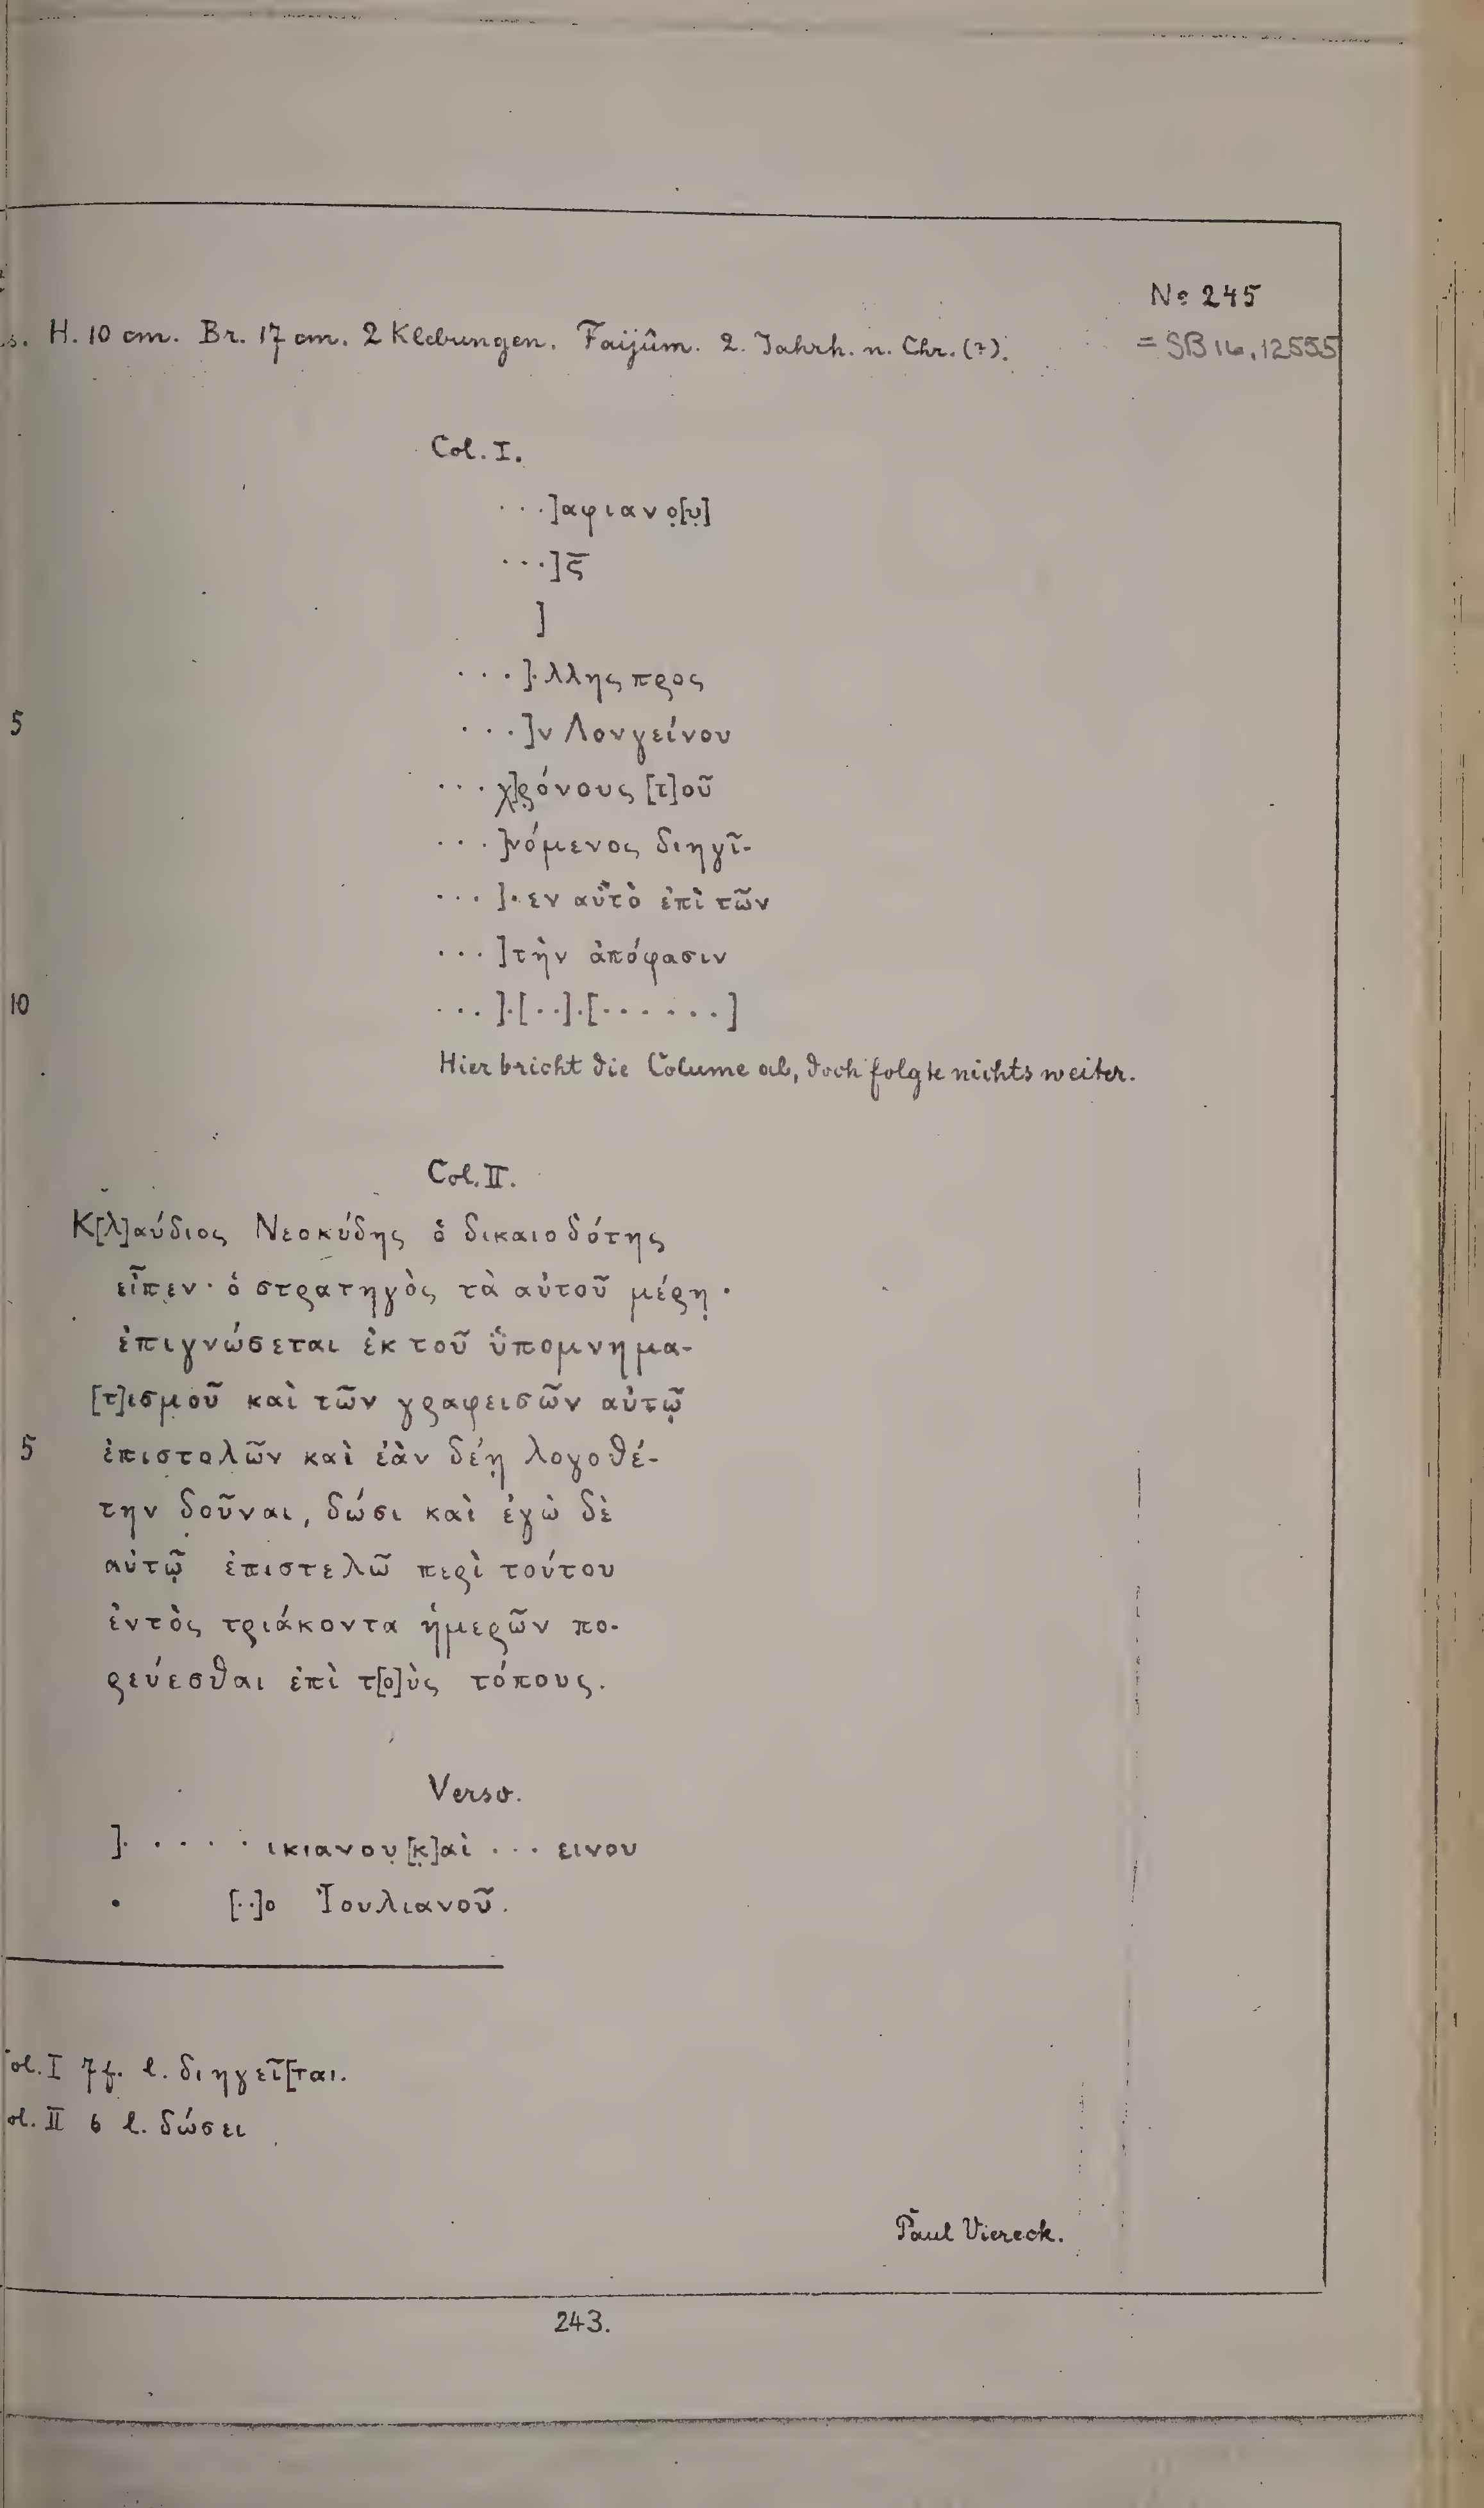 № 245
= SB 16, 12555
s. H. 10 cm. Br. 17 cm. 2 Klebungen. Faijûm. 2. Jahrh. n. Chr. (?).
Col. I.
...]αφιανο̣[υ̣]
...]ς̅
]
...]·λλης προς
5 ...]ν Λονγείνου
... χ]ρ̣όνους [τ]οῦ
...]νόμενος διηγῖ-
...]·εν αὐτὸ ἐπὶ τῶν
...]τὴν ἀπόφασιν
10 ...]·[··]·[······]
Hier bricht die Columne ab, doch folgte nichts weiter.
Col. II.
Κ[λ]αύδιος Νεοκύδης ὁ δικαιοδότης
εἶπεν· ὁ στρατηγὸς τὰ αὐτοῦ μέρη·
ἐπιγνώσεται ἐκ τοῦ ὑπομνημα-
[τ]ισμοῦ καὶ τῶν γραφεισῶν αὐτῷ
5 ἐπιστολῶν καὶ ἐὰν δέῃ λογοθέ-
την δοῦναι, δώσι καὶ ἐγὼ δὲ
αὐτῷ ἐπιστελῶ περὶ τούτου
ἐντὸς τριάκοντα ἡμερῶν πο-
ρεύεσθαι ἐπὶ τ[ο]ὺς τόπους.
Verso.
]· ···· ικιανου [κ̣]αὶ ··· εινου
· [··]ο Ἰουλιανοῦ.
ol. I 7f. l. διηγεῖ[ται.
ol. II 6 l. δώσει
Paul Viereck.
243.